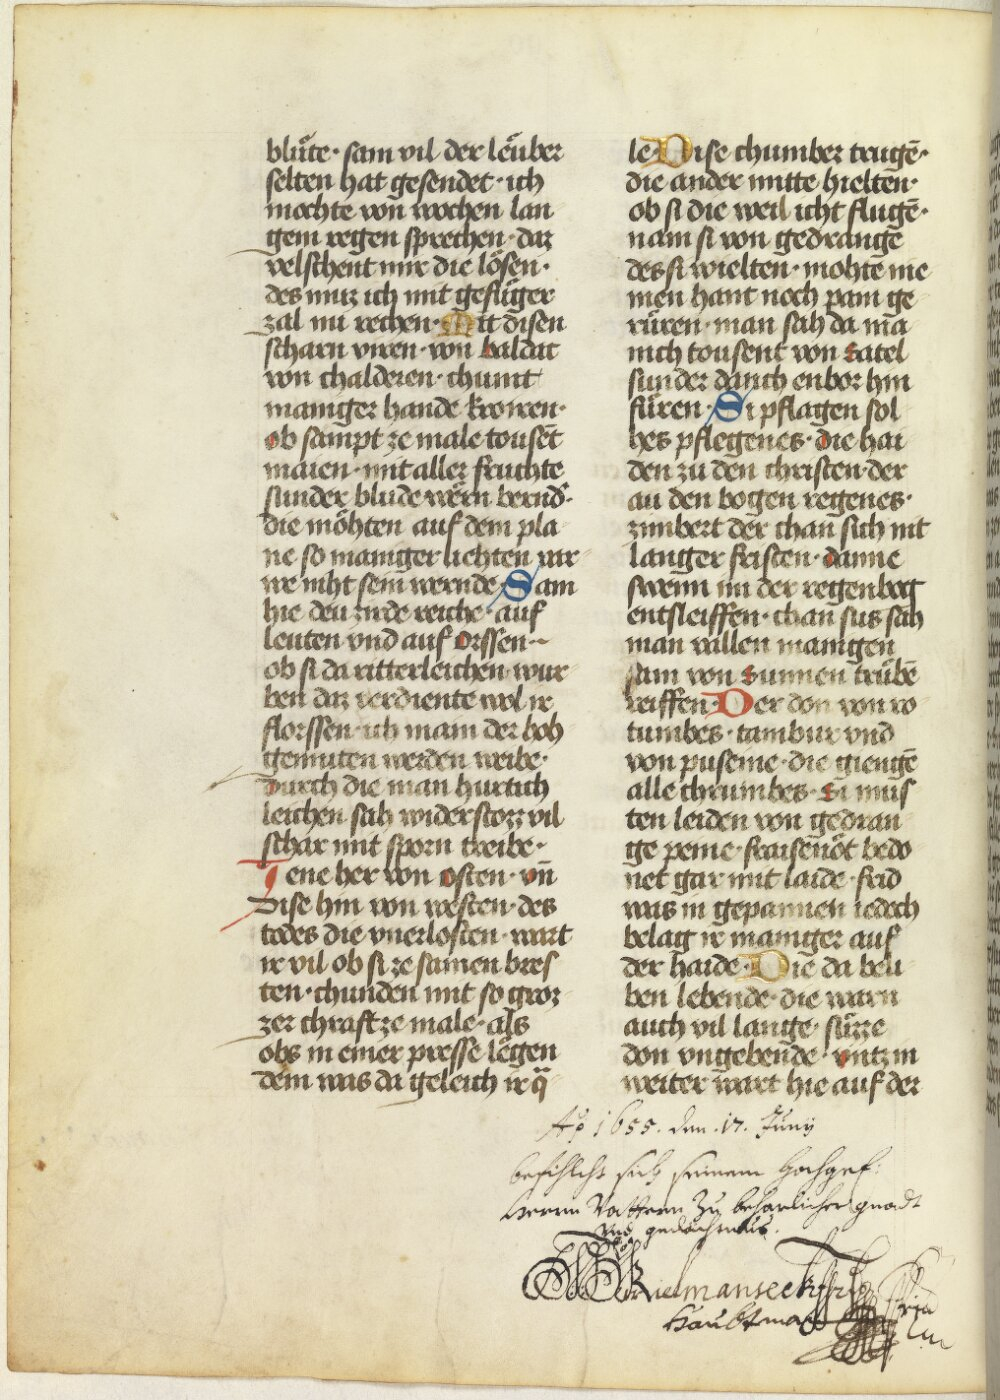 blůte· sam vil der leuber
selten hat gesendet· ich
mochte von wochen lan
gem regen sprechen· daz
velschent mir die lösen·
des muz ich mit gefüger
zal nu rechen· Mit disen
scharn viren· von baldac
von chalderen· chumt
maniger hande krowen·
ob sampt ze male tousēt
maien· mit aller fruchte
sunder blude wērn bernd·
die möhten auf dem pla
ne so maniger liehten var
we niht sein wernde· Sam
hie deu zirde reiche· auf
leuten vnd auf orssen·
ob si da ritterleichen wur
ben daz verdiente wol ir
florssen· ich main der hoh
gemuten werden weibe·
durch die man hurtich
leichen sah widerstozz vil
schar mit sporn treibe·
Jene her von osten· vn̄
dise hin von westen· des
todes die vnerlosten· wart
ir vil ob si ze samen bres
ten· chunden mit so groz
zer chraft ze male· als
obs in einer presse legen
dem was da geleich ir q̈
le· Dise chumber trugē·
die ander mitte hielten·
ob si die weil icht flugē·
nam si von gedrange
des si wielten· mohte nie
men hant noch pain ge
rüren· man sah da ma
nich tousent von satel
sunder danch enbor hin
füren· Si pflagen sol
hes pflegenes· die hai
den zu den christen· der
an den bogen regenes·
zimbert der chan sich nit
langer fristen· danne
swenn im der regenbog
entsleiffen· chan sus sah
man vallen manigen
sam von sunnen trübē
reiffen· Der don von ro
tumbes· tambur vnd
von puseme· die giengē
alle chrumbes· Si mus
ten leiden von gedran
ge peine· fraisenöt bedo
net gar mit laide· frid
was in gepannen iedoch
belag ir maniger auf
der haide· Die da beli
ben lebende· die warn
auch vil lange· süzze
don vngebende· vntz in
weiter wart hie auf der
Aō 1655. den .17. Juny
befihlcht sich seinem hochgef:
Herrn Vattern Zu beharlicher gnadt
vnd gedächtnus.
Kielmanseck frh
Haubtman